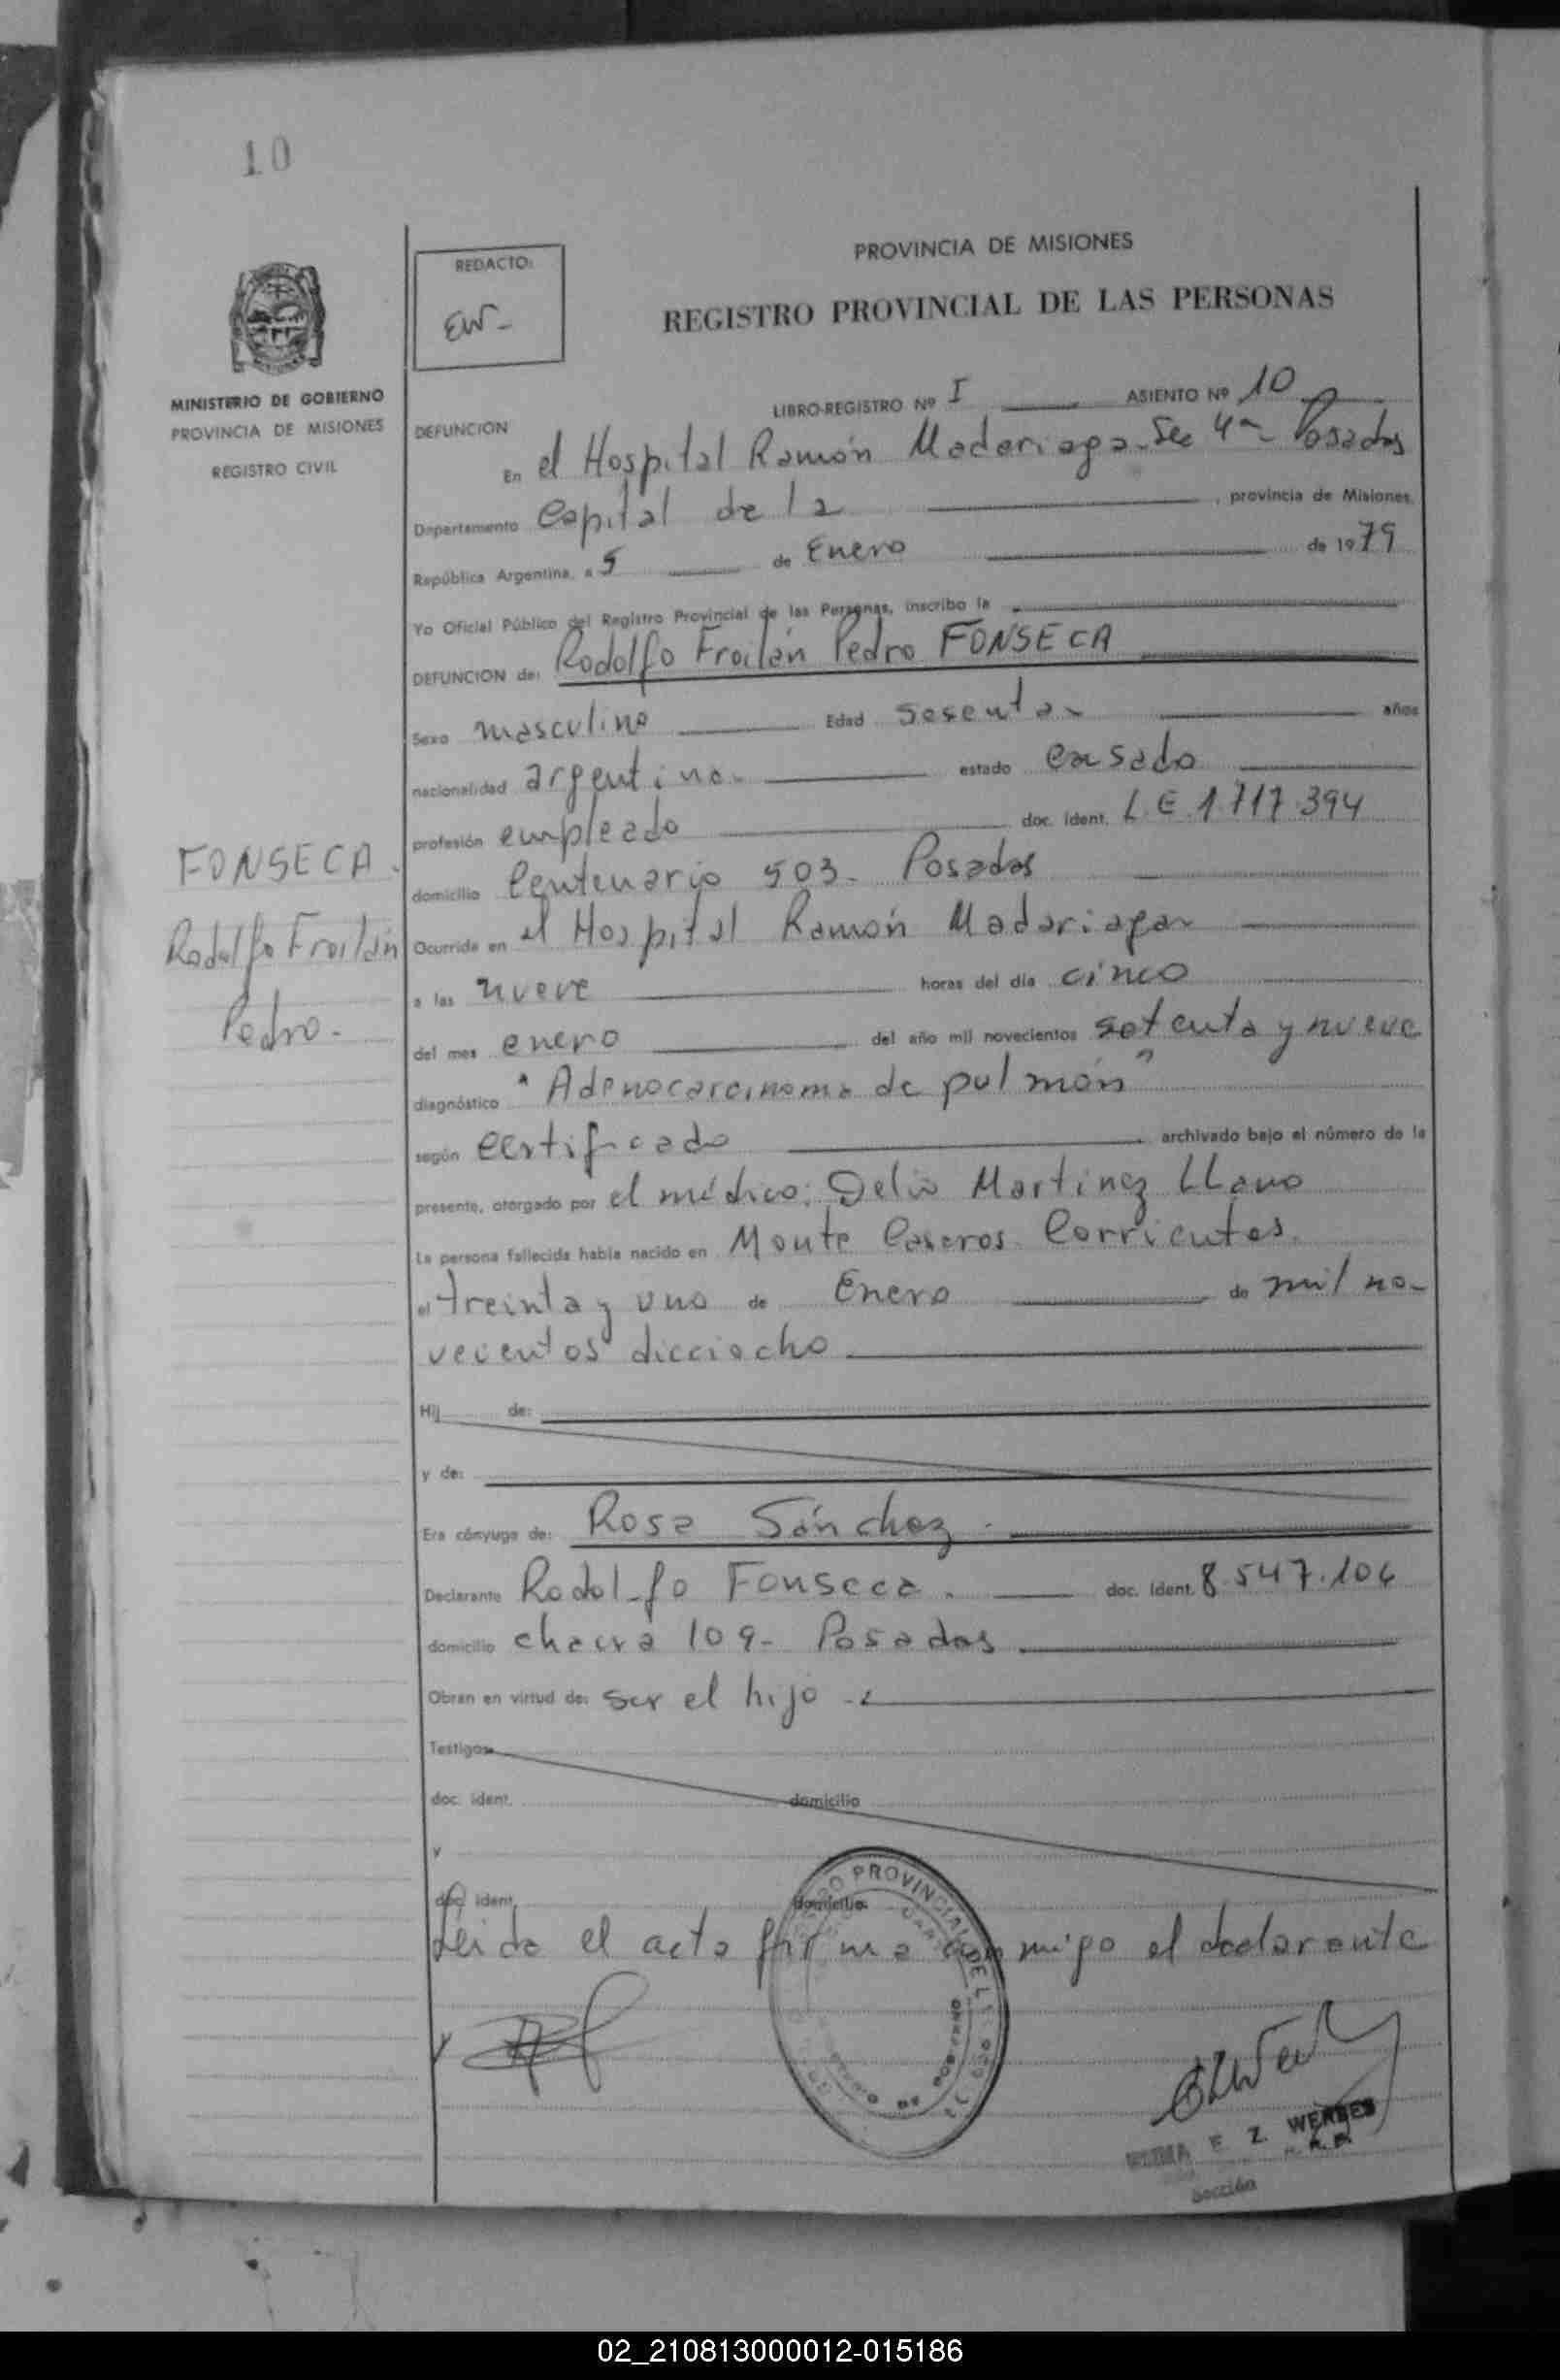 10
PROVINCIA DE MISIONES
REGISTRO PROVINCIAL DE LAS PERSONAS
REDACTO:
EW-
MINISTERIO DE GOBIERNO
PROVINCIA DE MISIONES
REGISTRO CIVIL
LIBRO-REGISTRO Nº I ASIENTO Nº 10
DEFUNCION
En el Hospital Ramón Madariaga - Sec 4ª Posadas
Departamento Capital de la , provincia de Misiones,
República Argentina, a 5 de Enero de 1979
Yo Oficial Público del Registro Provincial de las Personas, inscribo la
DEFUNCION de: Rodolfo Froilán Pedro FONSECA
Sexo masculino Edad sesenta años
nacionalidad argentino - estado casado
profesión empleado doc. ident. L.E. 1.717.394
domicilio Centenario 503 - Posadas
Ocurrida en el Hospital Ramón Madariaga
a las nueve horas del día cinco
del mes enero del año mil novecientos setenta y nueve
diagnóstico "Adenocarcinoma de pulmón"
según certificado archivado bajo el número de la
presente, otorgado por el médico: Delio Martinez LLano
La persona fallecida había nacido en Monte Caseros Corrientes.
el treinta y uno de Enero de mil no-
vecientos dieciocho
Hij de:
y de:
Era cónyuge de: Rosa Sánchez
Declarante Rodolfo Fonseca . doc. ident. 8.547.106
domicilio chacra 109 - Posadas
Obran en virtud de: ser el hijo
Testigos
doc. ident. domicilio
y
doc. ident. domicilio
Leida el acta firma conmigo el declarante
FONSECA
Rodolfo Froilán
Pedro -
PROVINCIAL DE L
DE GOBIERNO
E. Z. WERBES
Sección
02_210813000012-015186